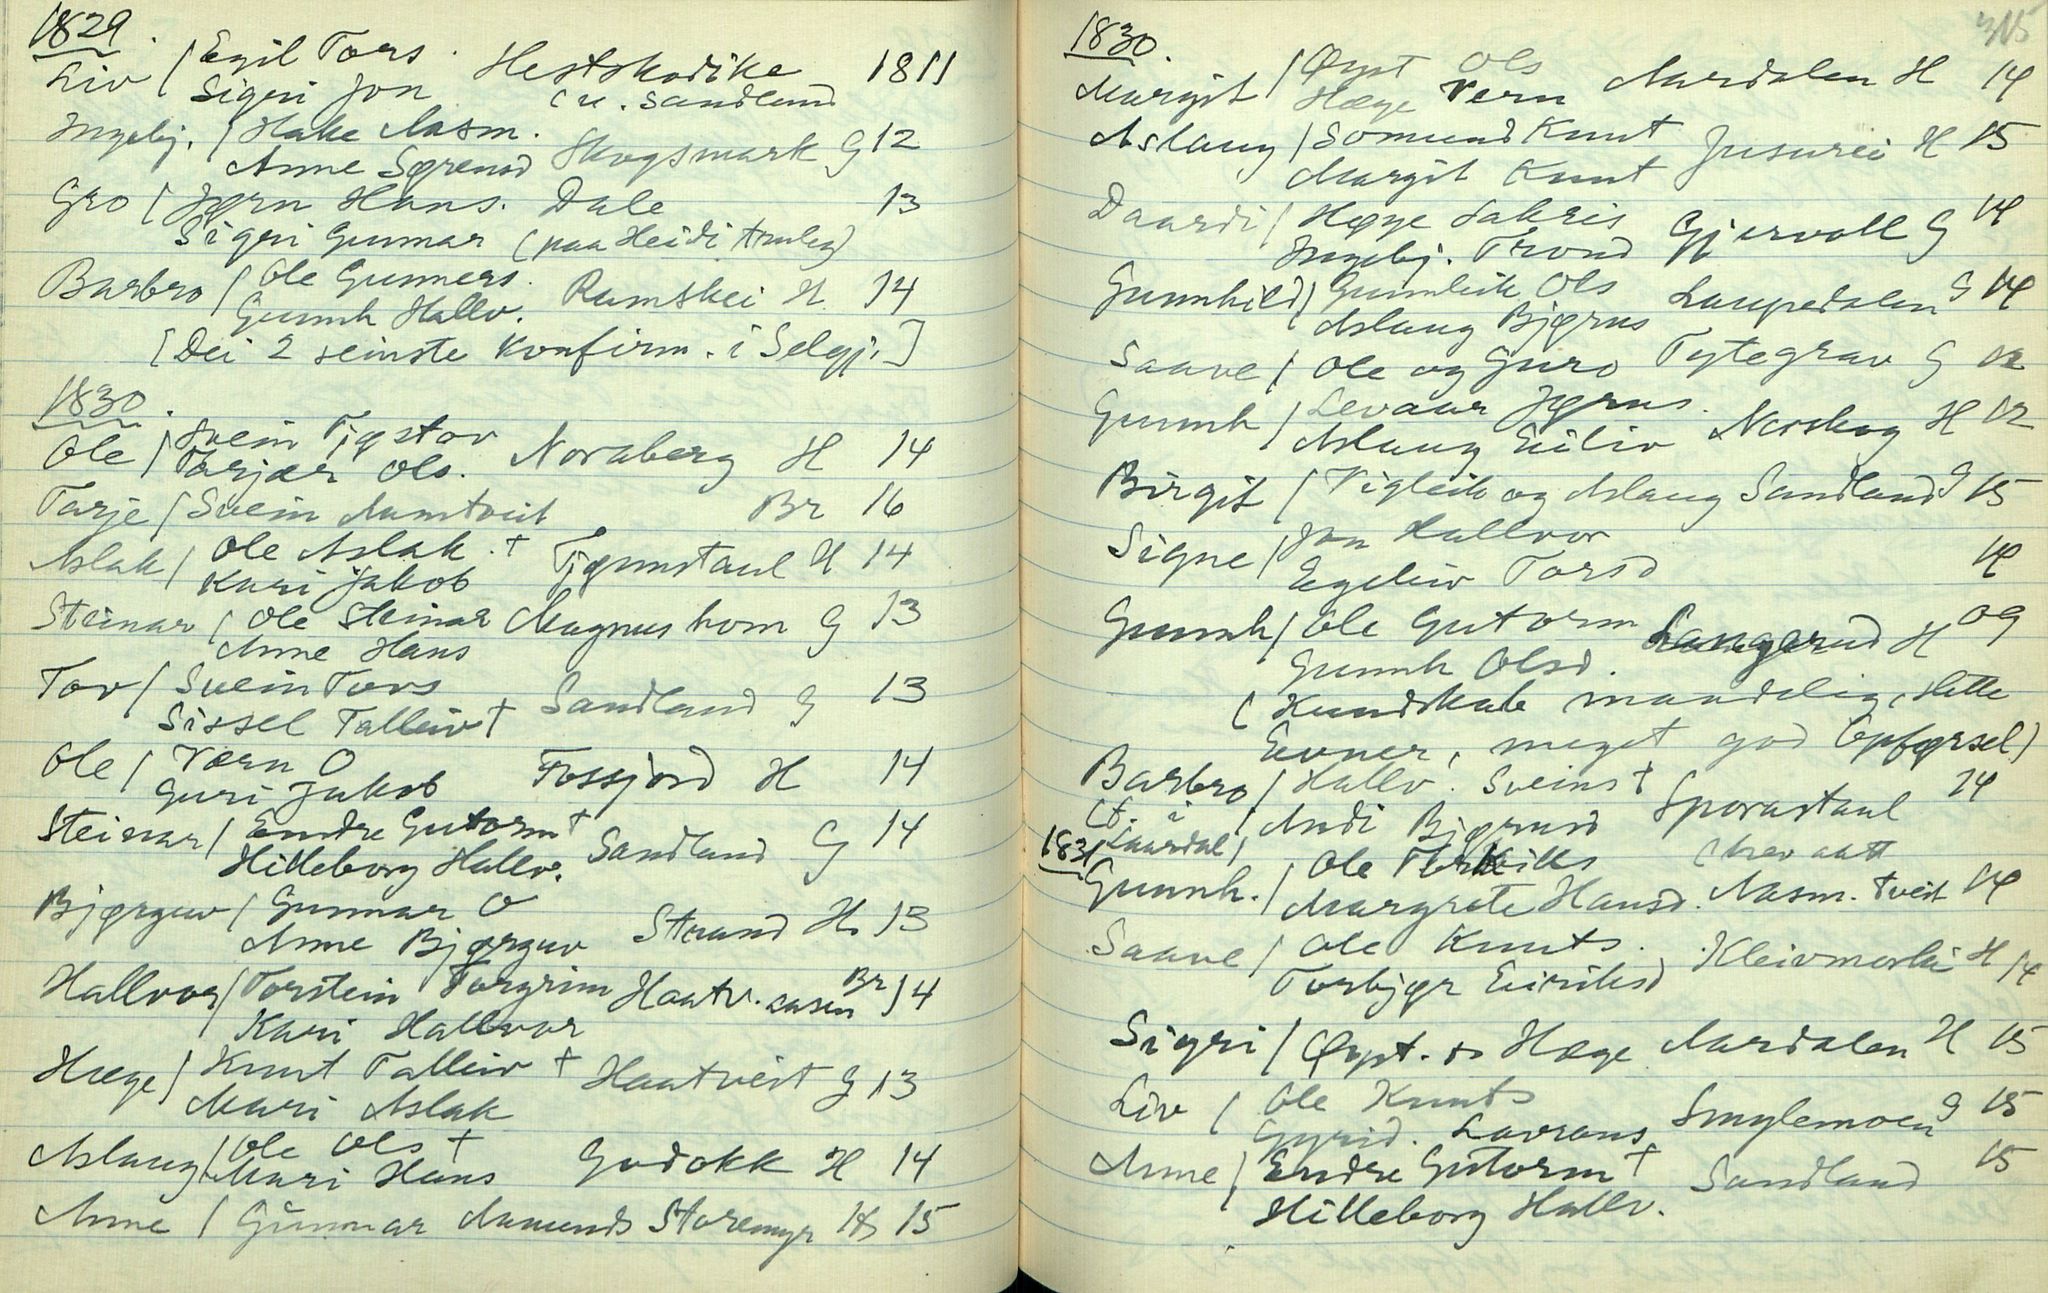 1829.
Liv / Egil Tors. Hestskodike 1811
Sigri Jon (u. Sandland
Ingebj. / Hake Aasm.
Anne Sørensd Skogsmark G 12
Gro / Jørn Hans. Dale 13
Sigri Gunnar (paa Heidi
Barbro / Ole Gunners. Rumskei H 14
Gunnh Hallv.
[Dei 2 seinste Konfirm. i Selgj.]
1830.
Ole / Svein Tjøstov Noraberg H 14
Tarjær Ols.
Tarje / Svein Aamtveit Br 16
Aslak / Ole Aslak. † Tjønnstaul H 14
Kari Jakob
Steinar / Ole Steinar Magnushom G 13
Anne Hans
Tov / Svein Tovs Sandland G 13
Sissel Talleiv †
Ole / Værn O Fossjord H 14
Guri Jakob
Steinar / Endre Gutorm † Sandland G 14
Hilleborg Hallv.
Bjørguv / Gunnar O Strand H. 13
Anne Bjørguv
Hallvor / Torstein Torgrim Haatv. aasen Br 14
Kari Hallvor
Hæge / Knut Talleiv † Haatveit G 13
Mari Aslak
Aslaug / Ole Ols † Godokk H 14
Mari Hans
Anne / Gunnar Aamunds Storemyr H 15
315
1830.
Margit / Øyst Ols Aardalen H 14
Hæge Vern
Aslaug / Somund Knut Jusurei H 15
Margit Knut
Daardi / Høye Sakris Gjervoll G 14
Ingebj. Trond
Gunnhild / Gunnleik Ols Laupedalen G 14
Aslaug Bjørns
Saave / Ole og Guro Tytegrav G 12
Gunnh / Levaar Jørns. Norskog H 12
Aslaug Eiliv
Birgit / Vigleik og Aslaug Sandland G 15
Signe / Jon Hallvor 14
Egeleiv Torsd
Gunnh / Ole Gutorm Langerud H 09
Gunnh Olsd.
(Kundskab maadelig, slette
Evner, meget god Opførsel)
Barbro / Hallv. Sveins † Sporastaul 14
(f. i Laardal) / Andi Bjørnsd
1831
Gunnh. / Ole Torkills (krev att
Margrete Hansd. Aasm. tveit 14
Saave / Ole Knuts. Kleivmorki H 14
Torbjør Eiriksd
Sigri / Øyst. og Hæge Aardalen H 15
Liv / Ole Knuts Smylemoen G 15
Gyrid. Lavrans
Anne / Endre Gutorm † Sandland 15
Hilleborg Hallv.